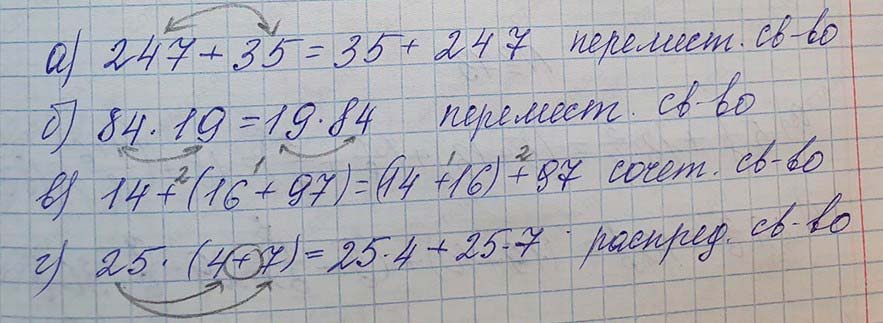 а) 247 + 35 = 35 + 247 перемест. св-во
б) 84 · 19 = 19 · 84 перемест. св-во
в) 14 +² (16 +¹ 97) = (14 +¹ 16) +² 97 сочет. св-во
г) 25 · (4 + 7) = 25 · 4 + 25 · 7 распред. св-во